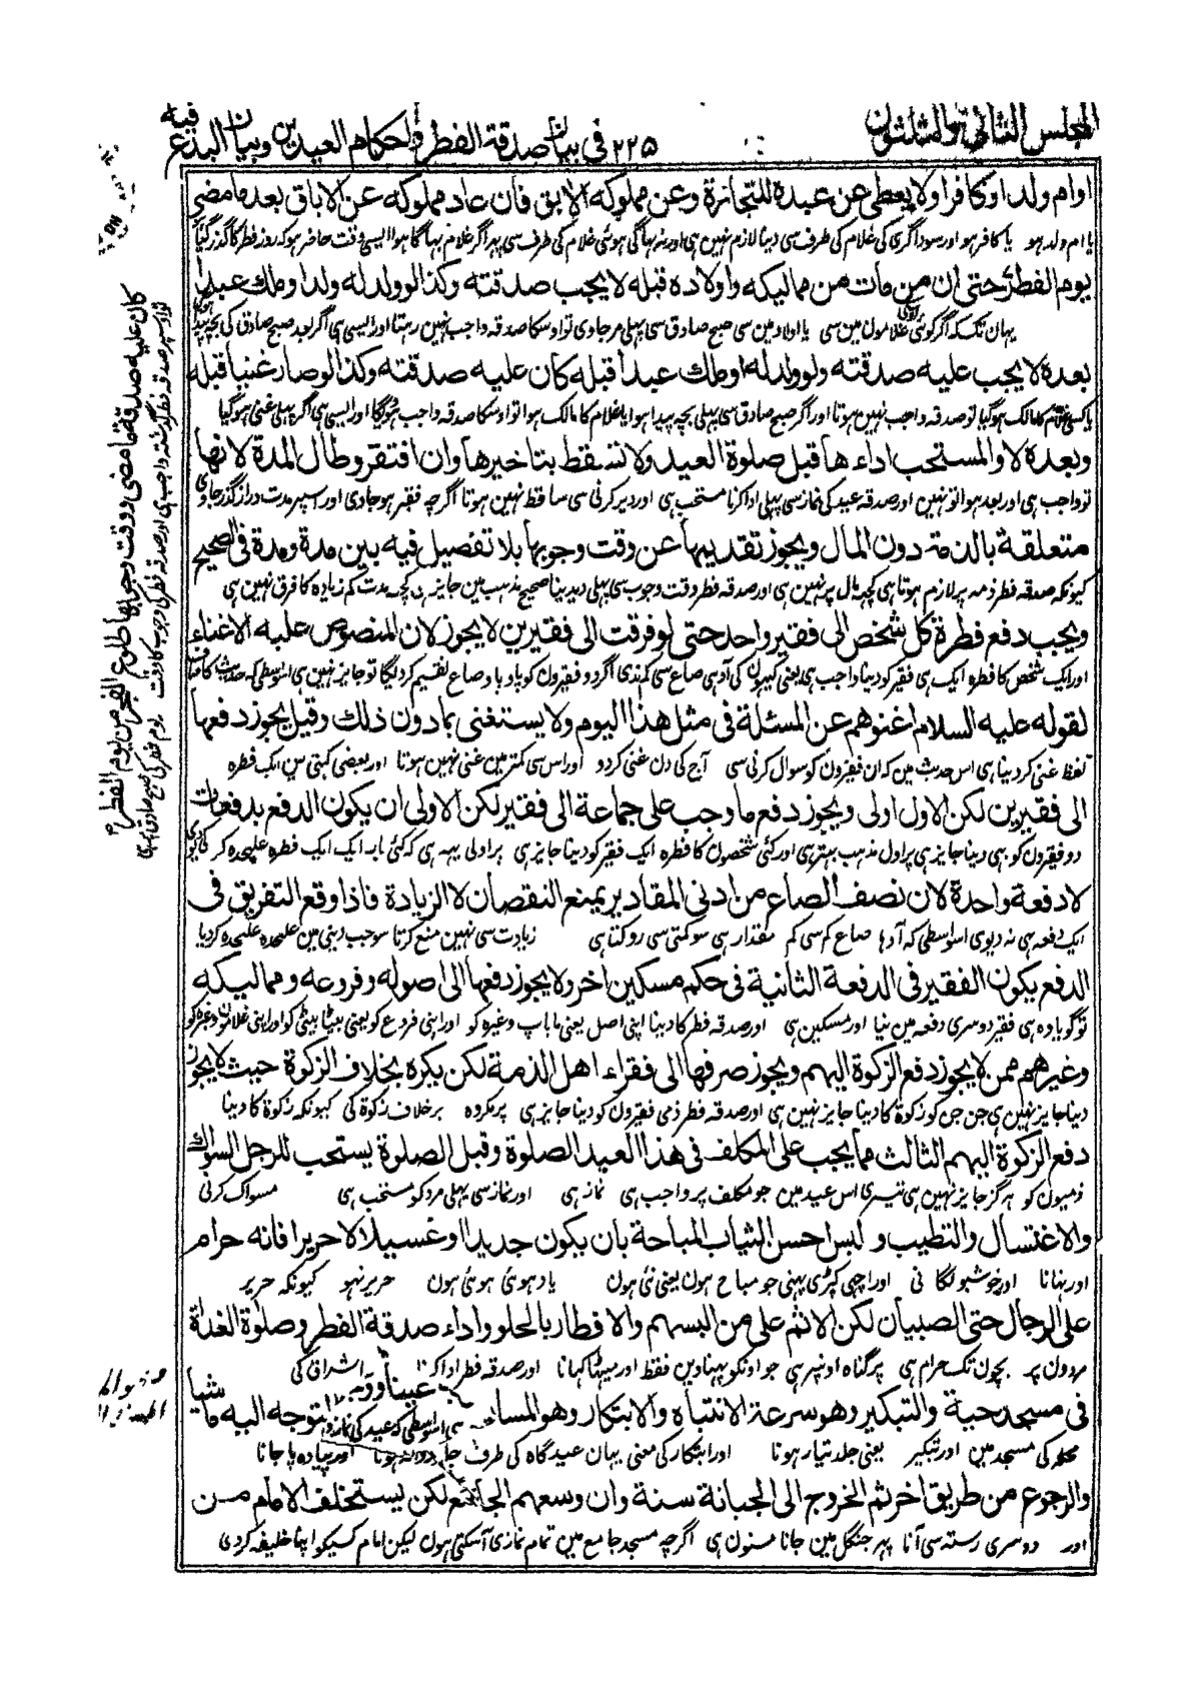 المجلس الثانی والثلثون
۲۲۵ فی بیان صدقة الفطر واحکام العیدین وبیان البدع فیه
اوام ولد اوکافرا ولا یعطی عن عبده للتجارة وعن مملوکه الآبق فان عاد مملوکه عن الاباق بعد ما مضی
یا ام ولد ہو یا کافر ہو اور سوداگری کی غلام کی طرف سی دینا لازم نہین ہی اور نہ بہاگی ہوئی غلام کی طرف سی پہر اگر غلام بہاگا ہوا ایسی وقت حاضر ہو کہ روز فطر کا گذر گیا
یوم الفطر حتی ان من مات من ممالیکه واولاده قبله لا یجب صدقته وکذا لو ولد له ولد او ملك عبدا
یہان تک کہ اگر کوئی غلامون مین سی یا اولاد مین سی صبح صادق سی پہلی مر جاوی تو اوسکا صدقہ واجب نہین رہتا اور ایسی ہی اگر بعد صبح صادق کی بچہ پیدا
بعده لا یجب علیه صدقته ولو ولد له او ملك عبدا قبله کان علیه صدقته وکذا لو صار غنیا قبله
یا کسی غلام کا مالک ہو گیا تو صدقہ واجب نہین ہوتا اور اگر صبح صادق سی پہلی بچہ پیدا ہوا یا غلام کا مالک ہوا تو اوسکا صدقہ واجب ہوگا اور ایسی ہی اگر پہلی غنی ہو گیا
وبعده لا والمستحب اداءها قبل صلوة العید ولا تسقط بتاخیرها وان افتقر وطال المدة لانها
تو واجب ہی اور بعد ہوا تو نہین اور صدقہ عید کی نماز سی پہلی ادا کرنا مستحب ہی اور دیر کرنی سی ساقط نہین ہوتا اگرچہ فقیر ہو جاوی اور اسپر مدت دراز گذر جاوی
متعلقة بالذمة دون المال ویجوز تقدیمها عن وقت وجوبها بلا تفصیل فیه بین مدة ومدة فی الصحیح
کیونکہ صدقہ فطر ذمہ پر لازم ہوتا ہی کچہ مال پر نہین ہی اور صدقہ فطر وقت وجوب سی پہلی دیدینا صحیح مذہب مین جایز ہی کچہ مدت کم زیادہ کا فرق نہین ہی
ویجب دفع فطرة کل شخص الی فقیر واحد حتی لو فرقت الی فقیرین لا یجوز لان المنصوص علیه الاغناء
اور ایک شخص کا فطرہ ایک ہی فقیر کو دینا واجب ہی یعنی گیہون کی آدہی صاع سی کم ندی اگر دو فقیرون کو پاو پاو صاع تقسیم کر دیگا تو جایز نہین ہی اسواسطی کہ حدیث کا
لقوله علیه السلام اغنوهم عن المسئلة فی مثل هذا الیوم ولا یستغنی بما دون ذلك وقیل یجوز دفعها
لفظ غنی کر دینا ہی اس حدیث مین کہ ان فقیرون کو سوال کرنی سی آج کی دن غنی کردو اور اس سی کمتر مین غنی نہین ہوتا اور بعضی کہتی ہین ایک فطرہ
الی فقیرین لکن الاول اولی ویجوز دفع ما وجب علی جماعة الی فقیر لکن الاولی ان یکون الدفع بدفعات
دو فقیرون کو بہی دینا جایز ہی پر اول مذہب بہتر ہی اور کئی شخصون کا فطرہ ایک فقیر کو دینا جایز ہی پر اولی یہہ ہی کہ کئی بار ایک ایک فطرہ علیحدہ کر کی
لا دفعة واحدة لان نصف الصاع من ادنی المقادیر یمنع النقصان لا الزیادة فاذا وقع التفریق فی
ایک دفعہ ہی نہ دیوی اسواسطی کہ آدہا صاع کم سی کم مقدار ہی سو کمتی سی روکتا ہی زیادت سی نہین منع کرتا سو جب دینی مین علیحدہ علیحدہ کر دیا
الدفع یکون الفقیر فی الدفعة الثانیة فی حکم مسکین اخر ولا یجوز دفعها الی اصوله وفروعه وممالیکه
تو گویا وہ ہی فقیر دوسری دفعہ مین نیا اور مسکین ہی اور صدقہ فطر کا دینا اپنی اصل یعنی ما باپ وغیرہ کو اور اپنی فروع کو یعنی بیٹا بیٹی کو اور اپنی غلامون وغیرہ کو
وغیرهم ممن لا یجوز دفع الزکوة الیهم ویجوز صرفها الی فقراء اهل الذمة لکن یکره بخلاف الزکوة حیث لا یجوز
دینا جایز نہین ہی جن جن کو زکوة کا دینا جایز نہین ہی اور صدقہ فطر ذمی فقیرون کو دینا جایز ہی پر مکروہ برخلاف زکوة کی کیونکہ زکوة کا دینا
دفع الزکوة الیهم الثالث مما یجب علی المکلف فی هذا العید الصلوة وقبل الصلوة یستحب للرجل السواك
ذمیون کو ہرگز جایز نہین ہی تیسری اس عید مین جو مکلف پر واجب ہی نماز ہی اور نماز سی پہلی مرد کو مستحب ہی مسواک کرنی
والاغتسال والتطیب ولبس احسن الثیاب المباحة بان یکون جدیدا او غسیلا لا حریرا فانه حرام
اور نہانا اور خوشبو لگانی اور اچہی کپڑی پہنی جو مباح ہون یعنی نئی ہون یا دہوئی ہوئی ہون حریر نہو کیونکہ حریر
علی الرجال حتی الصبیان لکن الاثم علی من البسهم والافطار بالحلو واداء صدقة الفطر وصلوة الغداة
مردون پر بچون تک حرام ہی پر گناہ اونپر ہی جو اونکو پہناوین فقط اور میٹہا کہانا اور صدقہ فطر ادا کرنا اشراق کی
فی مسجد حیه والتبکیر وهو سرعة الانتباه والابتکار وهو المسا توجه الیه ماشیا
محلہ کی مسجد مین اور تبکیر یعنی جلد تیار ہونا اور ابتکار کی معنی یہان عیدگاہ کی طرف جلد روانہ ہونا اور پیادہ پا جانا
والرجوع من طریق اخر ثم الخروج الی الجبانة سنة وان وسعهم الجامع لکن یستخلف الامام من
اور دوسری رستہ سی آنا پہر جنگل مین جانا مسنون ہی اگرچہ مسجد جامع مین تمام نمازی آسکتی ہون لیکن امام کسیکو اپنا خلیفہ کر دی
کان علیه صدقة ما مضی ووقت وجوبها طلوع الفجر من یوم الفطر